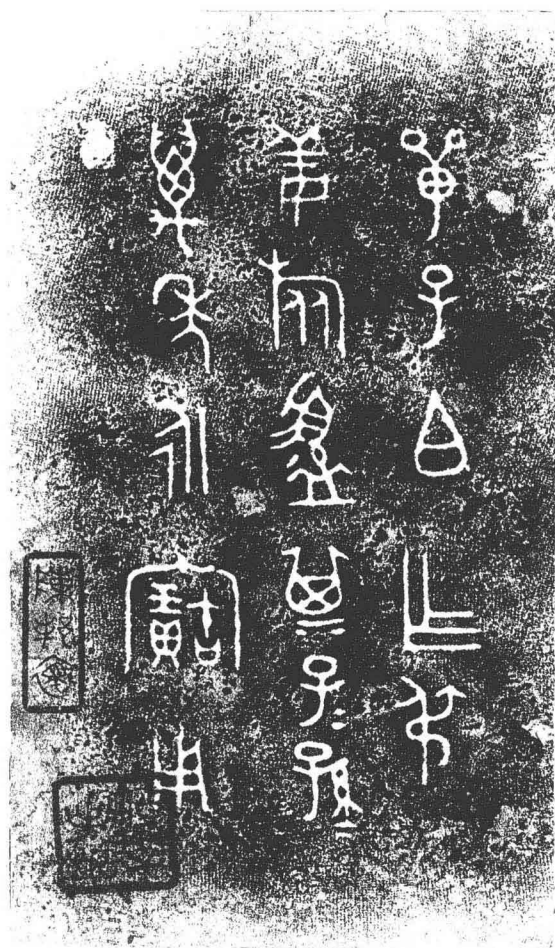 單子白乍弔
姜旅盨其子=孫=
萬年永寶用